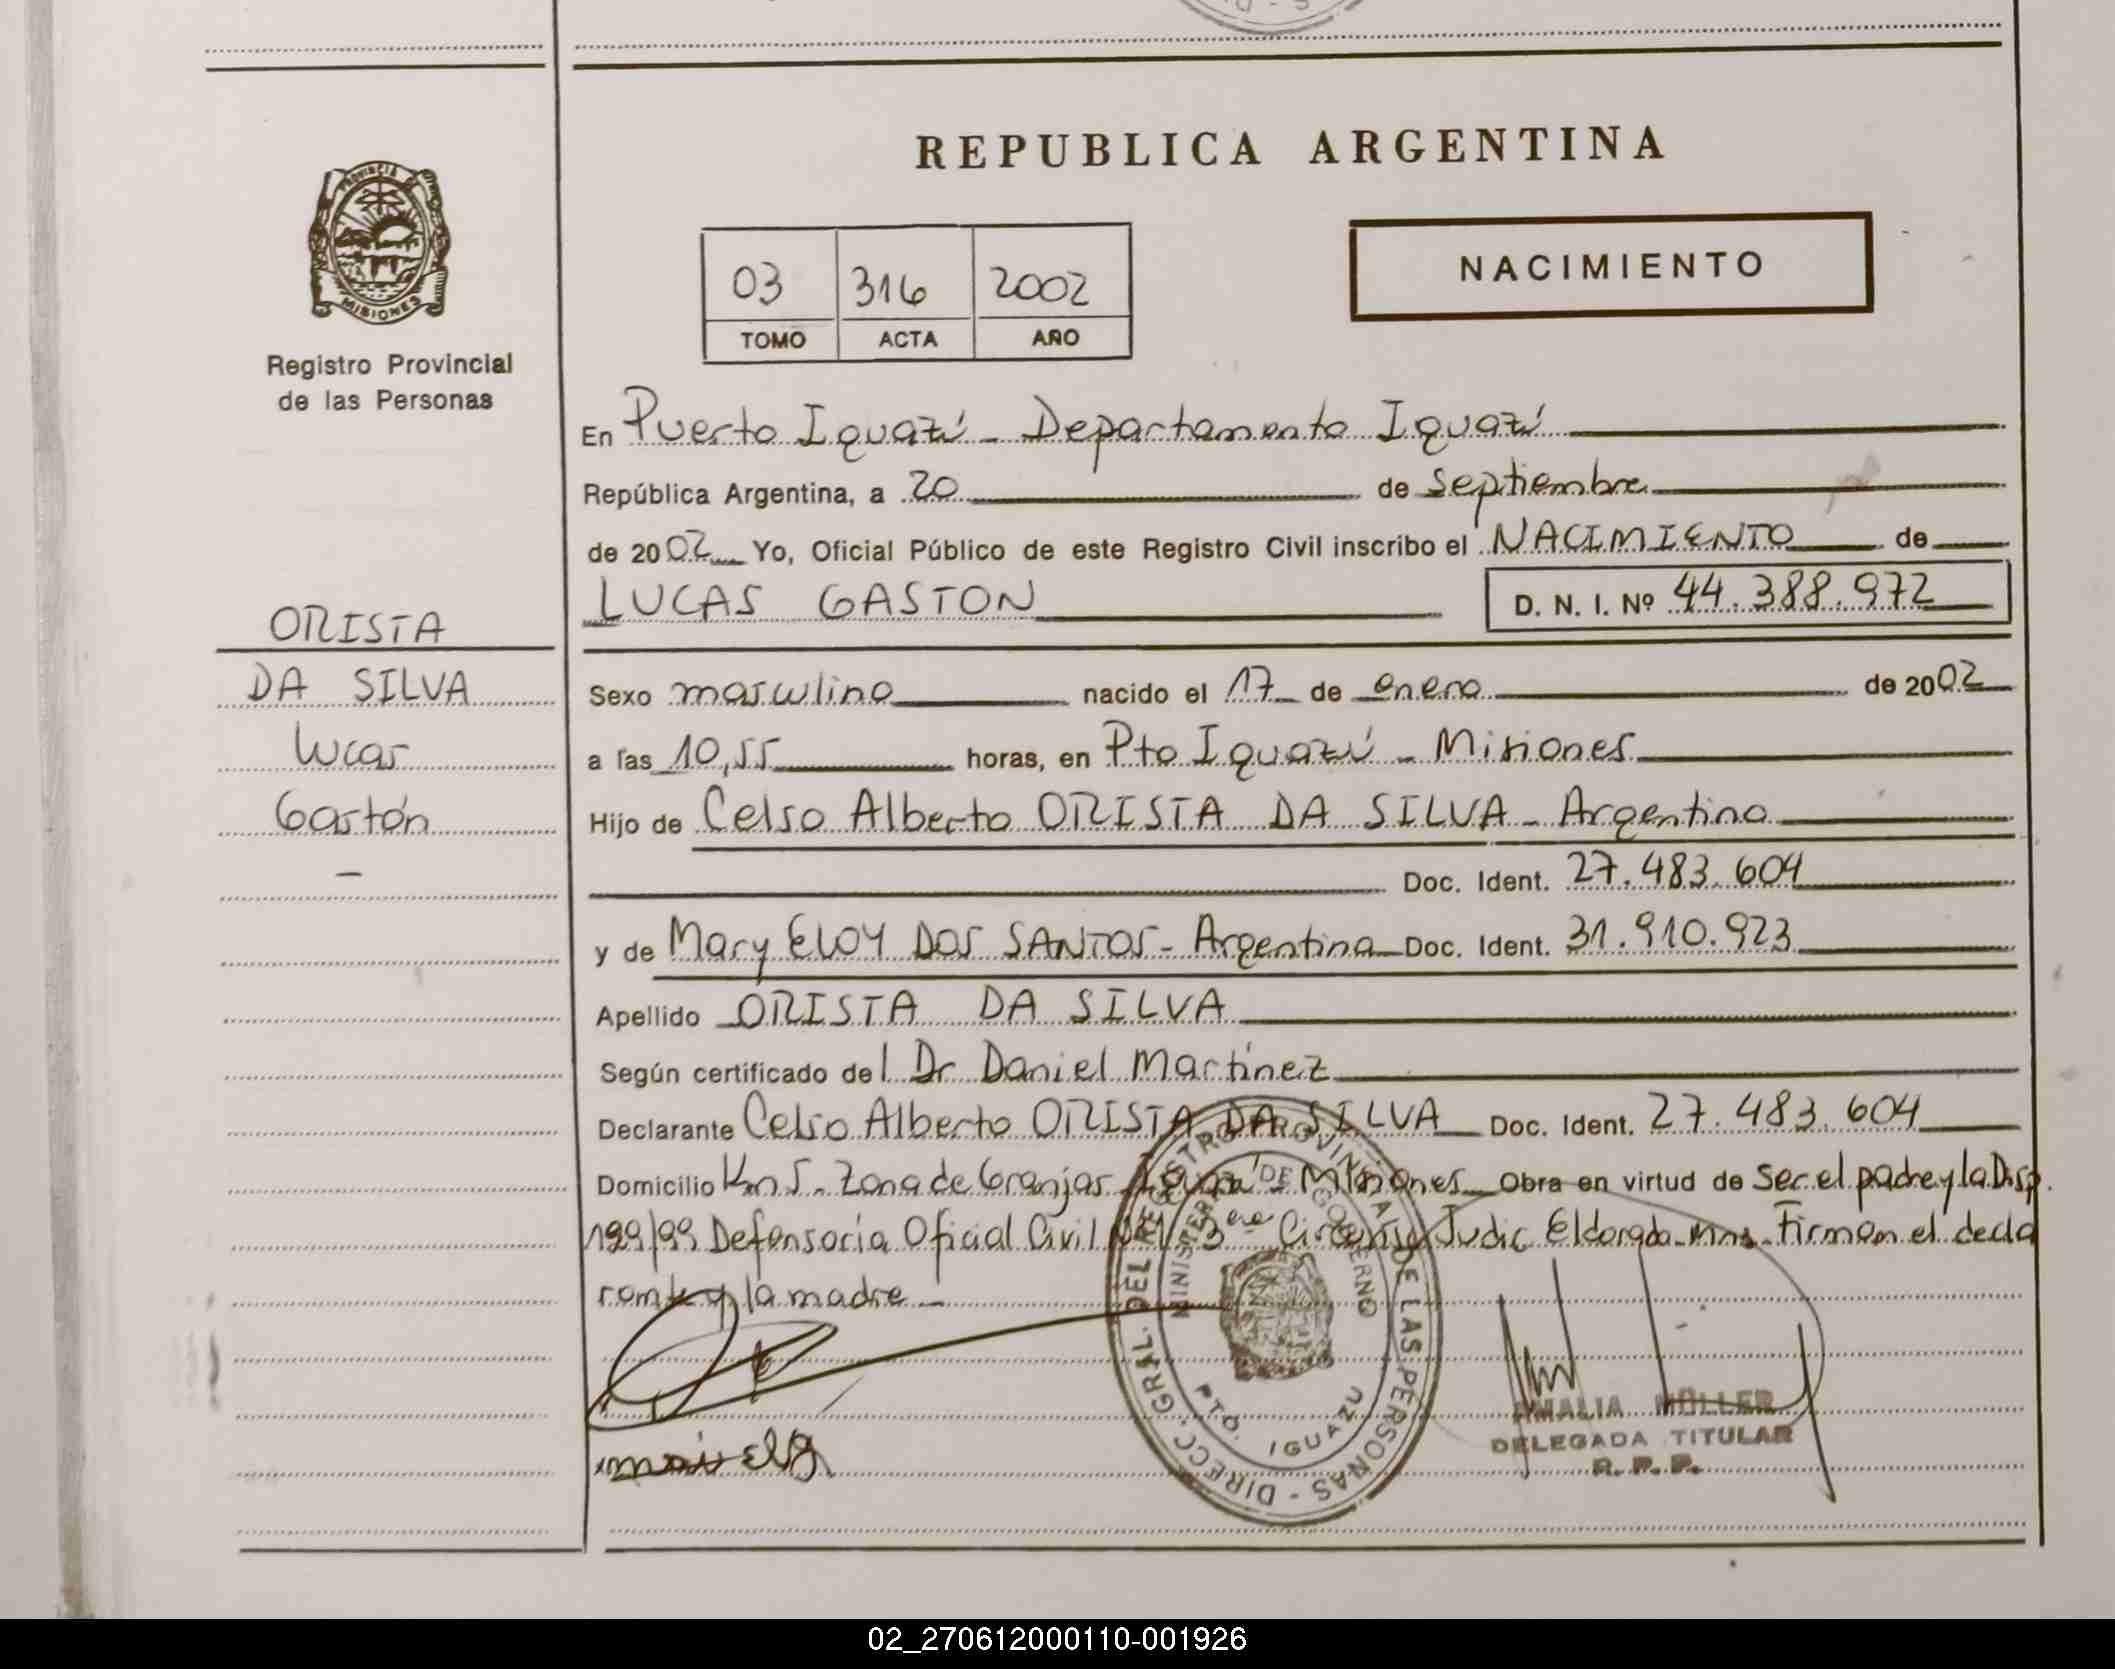 REPUBLICA ARGENTINA
PROVINCIA DE
MISIONES
Registro Provincial
de las Personas
NACIMIENTO
03 316 2002
TOMO ACTA AÑO
En Puerto Iguazú - Departamento Iguazú
República Argentina, a 20 de Septiembre
de 2002 Yo, Oficial Público de este Registro Civil inscribo el NACIMIENTO de
LUCAS GASTON D. N. I. Nº 44.388.972
ORISTA
DA SILVA
Lucas
Gastón
Sexo masculino nacido el 17 de enero de 2002
a las 10,55 horas, en Pto Iguazú - Misiones
Hijo de Celso Alberto ORISTA DA SILVA - Argentino
Doc. Ident. 27.483.604
y de Mary ELOY DOS SANTOS - Argentina Doc. Ident. 31.910.923
Apellido ORISTA DA SILVA
Según certificado del Dr Daniel Martinez
Declarante Celso Alberto ORISTA DA SILVA Doc. Ident. 27.483.604
Domicilio Km 5 - Zona de Granjas - Iguazú - Misiones Obra en virtud de Ser el padre y la Disp.
199/99 Defensoria Oficial Civil Nº1 3era Circunsc Judic Eldorado - Mns - Firman el decla
rante y la madre -
DIRECC. GRAL. DEL REGISTRO PROVINCIAL DE LAS PERSONAS
MINISTERIO DE GOBIERNO
PTO. IGUAZU
AMALIA MÜLLER
DELEGADA TITULAR
R. P. P.
02_270612000110-001926